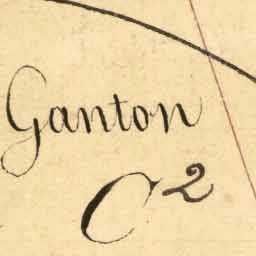 Ganton
C²